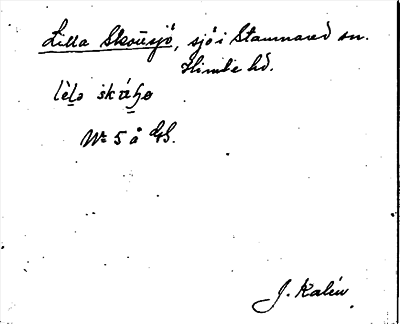 Lilla Skorsjö, sjö i Stamnared sn.
Himle hd.
lèlə skáhə
Nr 5 å GS.
J. Kalén